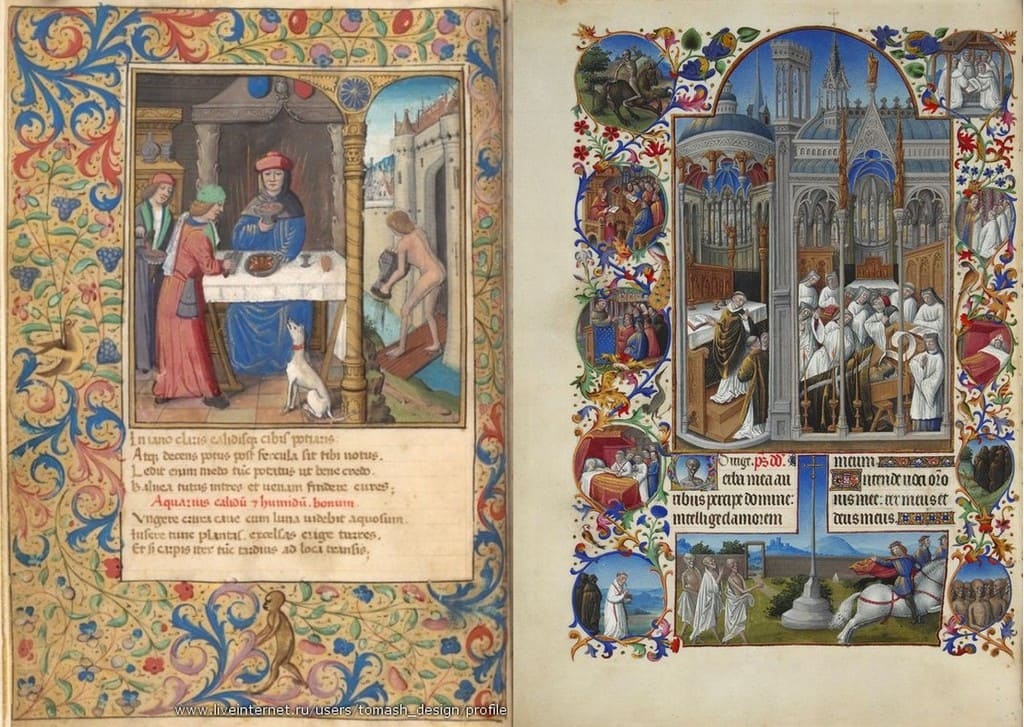 In iano claris calidisq; cibis potiaris.
Atq; decens potus post fercula sit tibi notus.
Ledit enim medo tūc potatus ut bene credo.
Balnea tutus intres et uenam findere cures.
Aquarius calidū ⁊ humidū. bonum.
Ungere crura caue cum luna uidebit aquosum.
Insere tunc plantas. excelsas erige turres.
Et si carpis iter tūc tardius ad loca transis,
www.liveinternet.ru/users/tomash_design/profile
uirige. ps dd.
erba mea au
ribus percipe domine:
intellige clamorem
meum
Intende uoci oro
nis mee: rex meus et
deus meus.